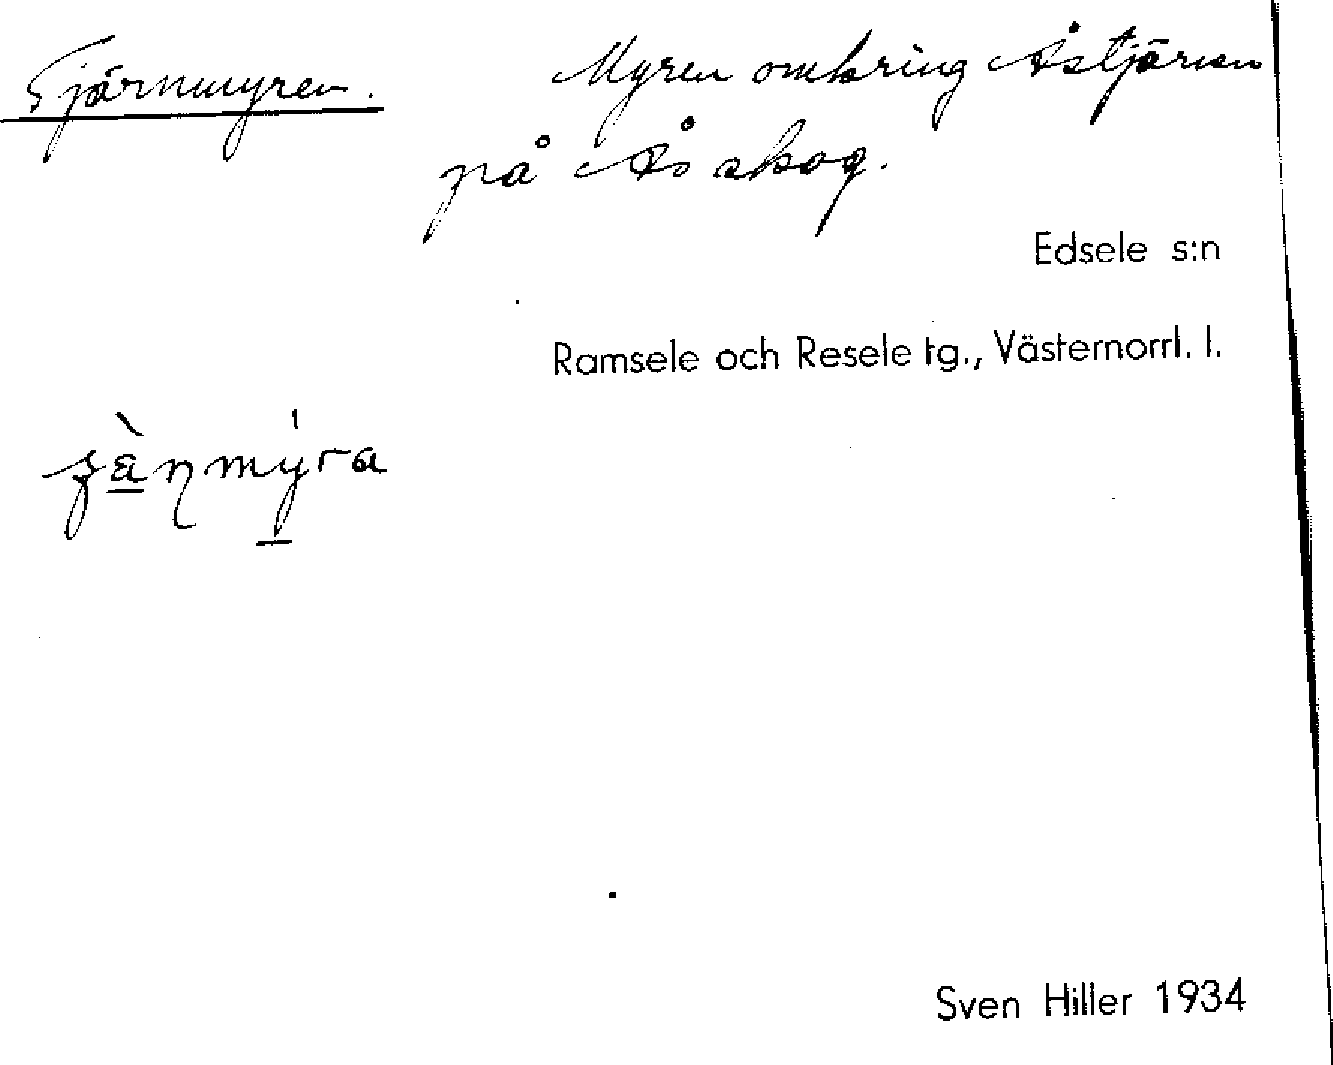 Tjärnmyren. Myren omkring Åstjärnen
på Ås skog.
Edsele s:n
Ramsele och Resele tg., Västernorrl. l.
Sven Hiller 1934